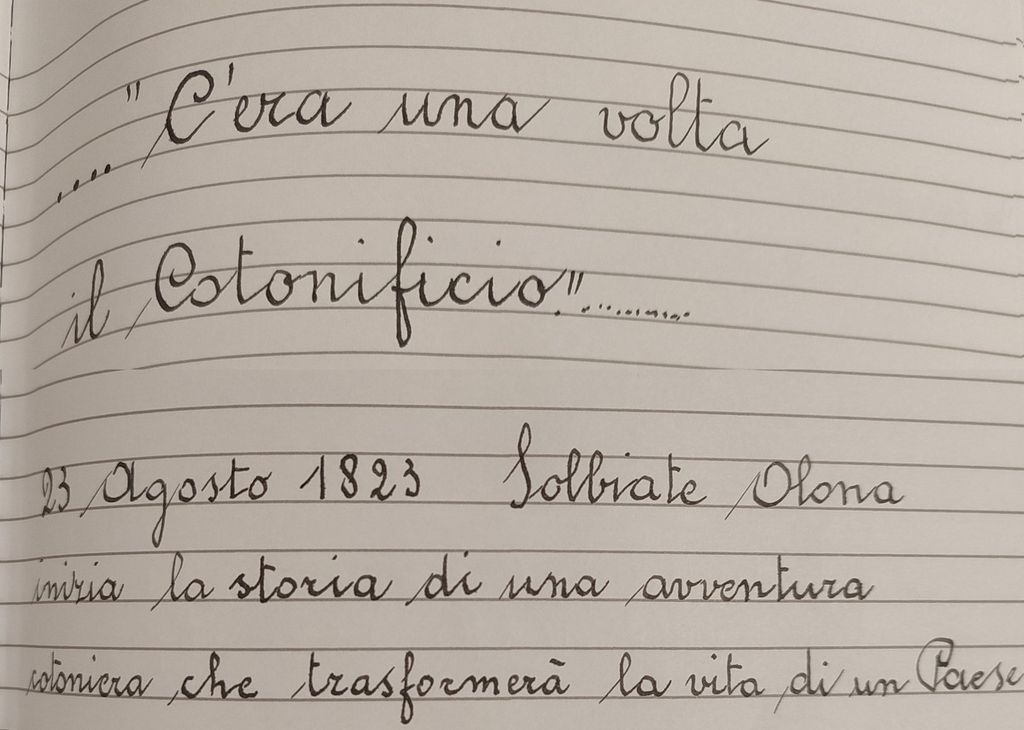 ...."C'era una volta
il Cotonificio."..........
23 Agosto 1823 Solbiate Olona
inizia la storia di una avventura
cotoniera che trasformerà la vita di un Paese